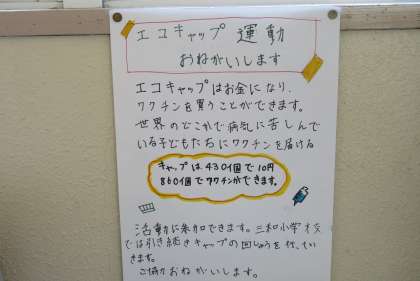 エコキャップ 運動
おねがいします
エコキャップはお金になり、
ワクチンを買うことができます。
世界のどこかで病気に苦しんで
いる子どもたちにワクチンを届ける
キャップは430個で10円
860個でワクチンができます。
活動に参加できます。三和小学校
では引き続きキャップの回しゅうを行ってい
きます。
ご協力おねがいします。